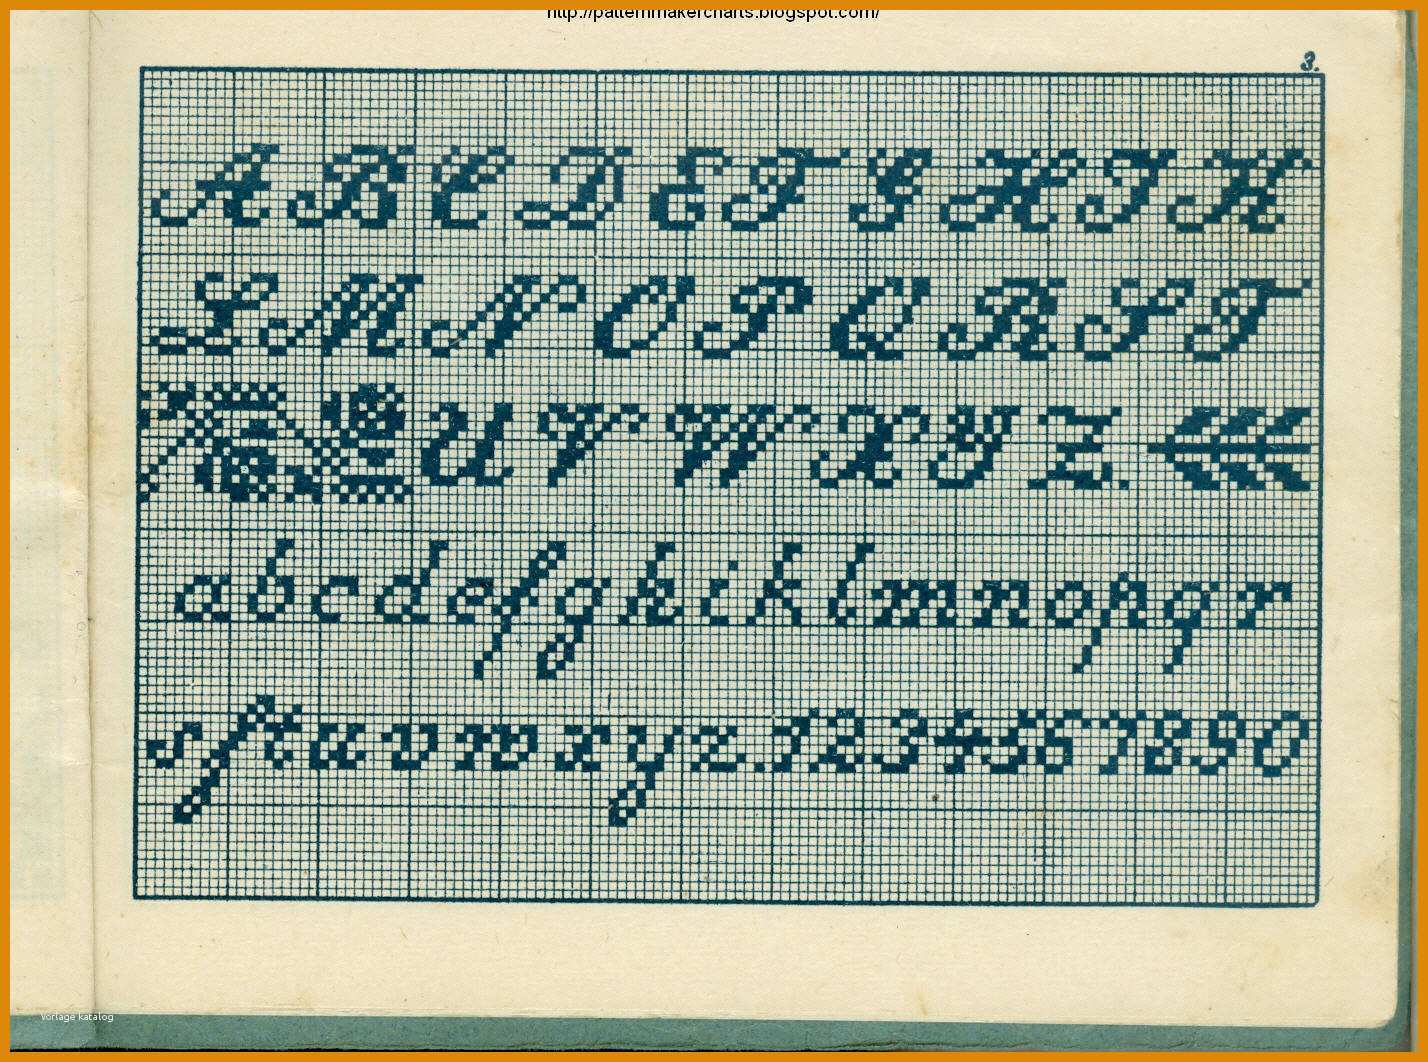 http://patternmakercharts.blogspot.com/
3.
A B C D E F G H I K
L M N O P Q R S T
U V W X Y Z.
a b c d e f g h i k l m n o p q r
s ſ t u v w x y z . 1 2 3 4 5 6 7 8 9 0
Vorlage katalog